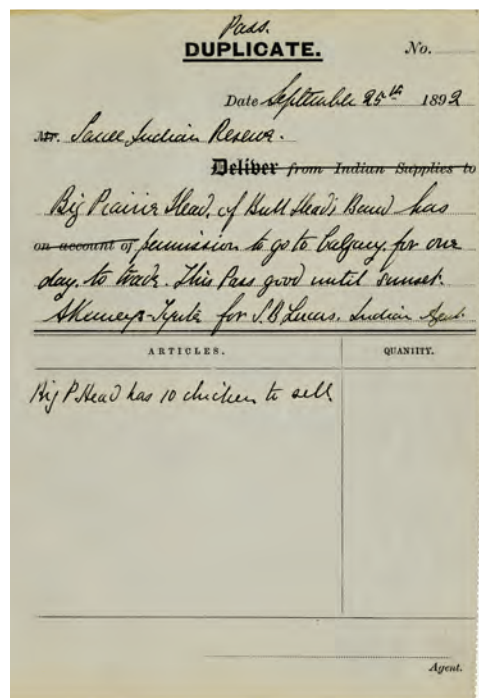 Pass.
DUPLICATE. No.
Date September 25th 1892
Mr. Sarcee Indian Reserve.
Deliver from Indian Supplies to
Big Prairie Head, of Bull Head's Band has
on account of permission to go to Calgary for one
day, to trade. This Pass good until sunset.
for S.B Lucas. Indian Agent
ARTICLES. QUANTITY.
Big P. Head has 10 chickens to sell
Agent.